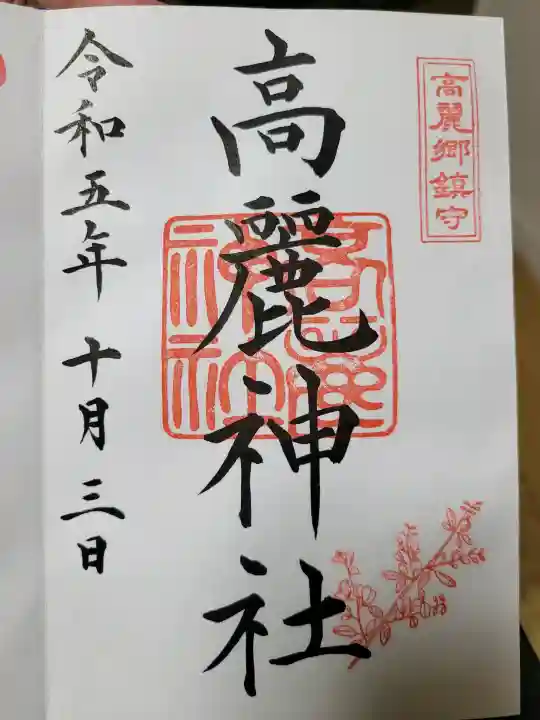 高麗郷鎮守
高麗神社
令和五年十月三日